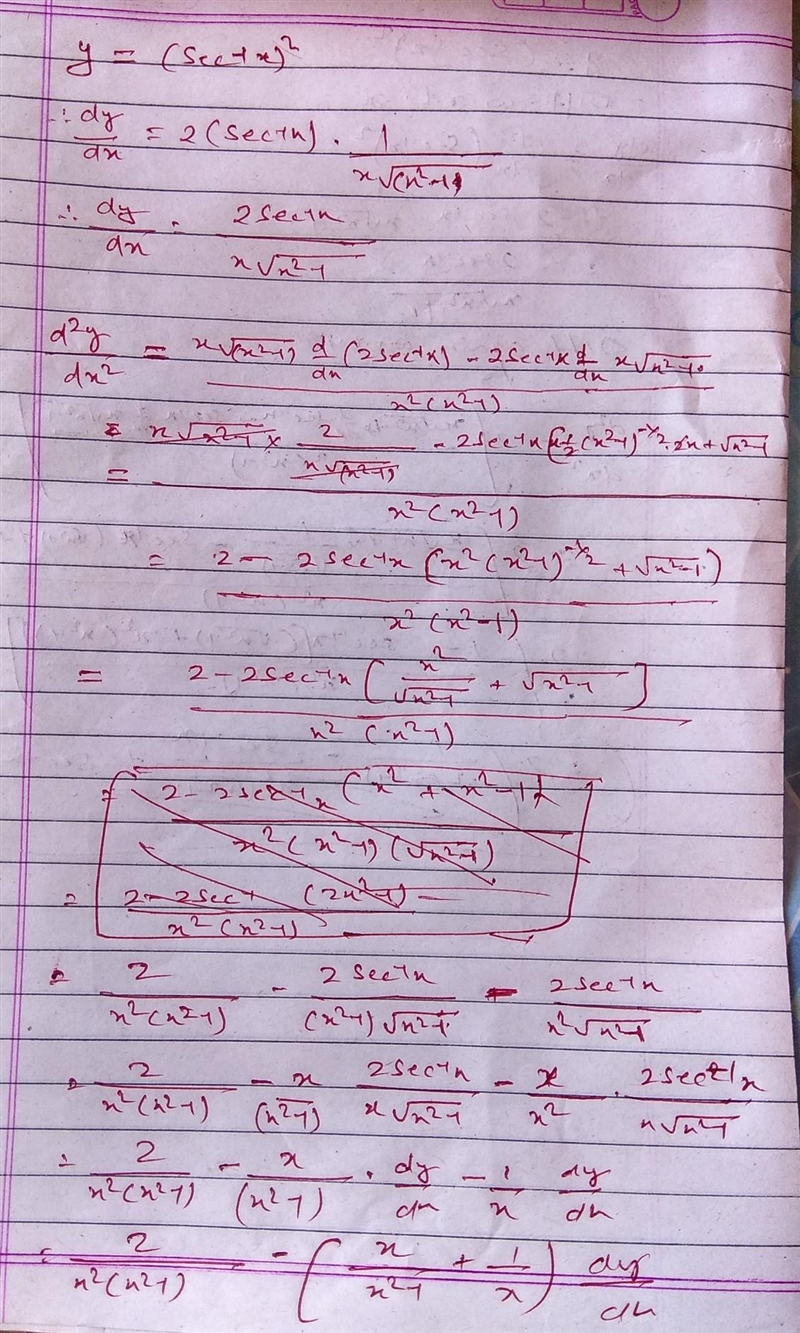 y = (sec⁻¹x)²
∴ dy/dx = 2(sec⁻¹x) · 1/(x√(x²-1))
∴ dy/dx = 2sec⁻¹x/(x√x²-1)
d²y/dx² = (x√(x²-1) d/dx (2sec⁻¹x) - 2sec⁻¹x d/dx x√x²-1)/(x²(x²-1))
= (x√x²-1 × 2/(x√(x²-1)) - 2sec⁻¹x [x½(x²-1)^-1/2 · 2x + √x²-1)/(x²(x²-1))
= (2 - 2sec⁻¹x (x²(x²-1)^-1/2 + √x²-1))/(x²(x²-1))
= (2 - 2sec⁻¹x [x²/√x²-1 + √x²-1])/(x²(x²-1))
= (2 - 2sec⁻¹x (x² + x²-1))/(x²(x²-1)(√x²-1))
= (2 - 2sec⁻¹ (2x²-1))/(x²(x²-1))
= 2/(x²(x²-1)) - 2sec⁻¹x/((x²-1)√x²-1) - 2sec⁻¹x/(x²√x²-1)
= 2/(x²(x²-1)) - x/(x²-1) 2sec⁻¹x/(x√x²-1) - x/x² · 2sec⁻¹x/(x√x²-1)
= 2/(x²(x²-1)) - x/(x²-1) · dy/dx - 1/x dy/dx
= 2/(x²(x²-1)) - (x/(x²-1) + 1/x) dy/dx